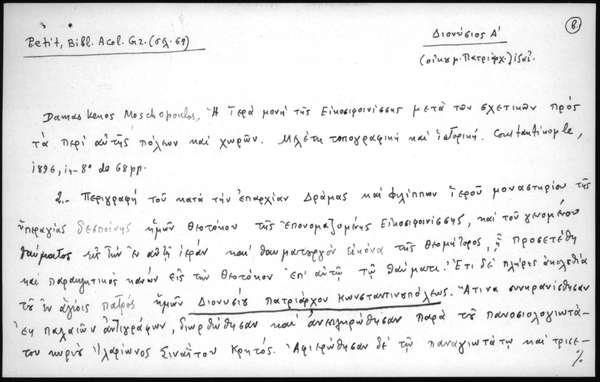 Petit, Bibl. Acol. Gr. (σελ. 69)
Διονύσιος Α' 8.
(οἰκουμ. Πατριάρχ.)
Damaskenos Moschopoulos, Ἡ ἱερὰ μονὴ τῆς Εἰκοσιφοινίσσης μετὰ τῶν σχετικῶν πρὸς
τὰ περὶ αὐτῆς πόλεων καὶ χωρῶν. Μελέτη τοπογραφικὴ καὶ ἱστορική. Constantinople,
1896, in-8° de 68 pp.
2.- Περιγραφὴ τοῦ κατὰ τὴν ἐπαρχίαν Δράμας καὶ Φιλίππων ἱεροῦ μοναστηρίου τῆς
ὑπεραγίας δεσποίνης ἡμῶν Θεοτόκου τῆς ἐπονομαζομένης Εἰκοσιφοινίσσης, καὶ τοῦ γενομένου
θαύματος κατὰ τὴν ἐν αὐτῇ ἱερὰν καὶ θαυματουργὸν εἰκόνα τῆς Θεομήτορος, ᾗ προσετέθη
καὶ παρακλητικὸς κανὼν εἰς τὴν Θεοτόκον ἐπ' αὐτῷ τῷ θαύματι. Ἔτι δὲ πλήρης ἀκολουθία
τοῦ ἐν ἁγίοις πατρὸς ἡμῶν Διονυσίου πατριάρχου Κωνσταντινουπόλεως. Ἅτινα συνηρανίσθησαν
ἐκ παλαιῶν ἀντιγράφων, διωρθώθησαν καὶ ἀνεπληρώθησαν παρὰ τοῦ πανοσιολογιωτά-
του κυρίου Ἱλαρίωνος Σιναΐτου Κρητός. Ἀφιερώθησαν δὲ τῷ παναγιωτάτῳ καὶ τρισε-
·/.